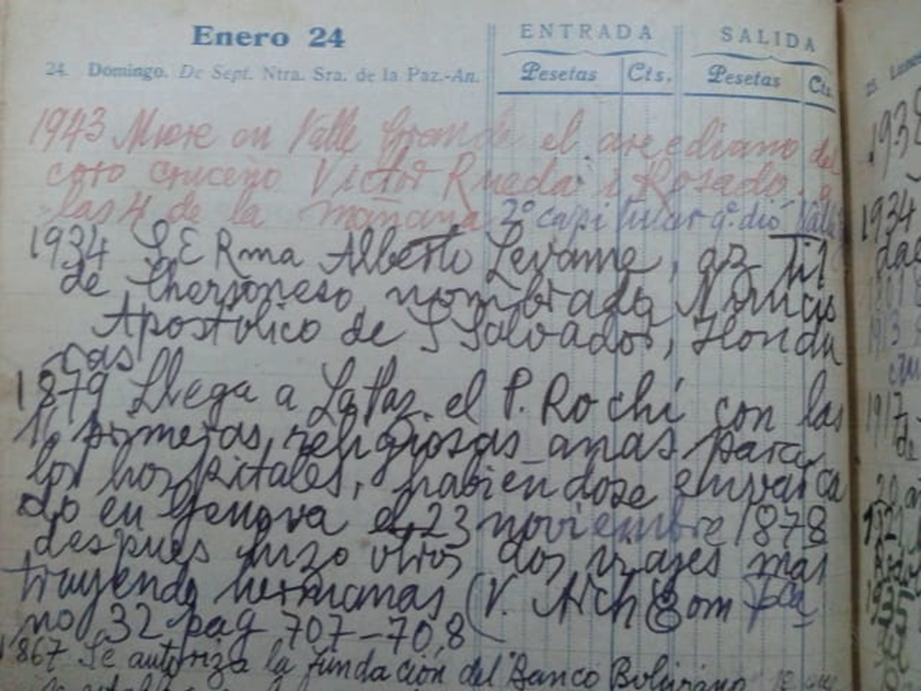 Enero 24
ENTRADA SALIDA
24. Domingo. De Sept. Ntra. Sra. de la Paz.-An.
Pesetas Cts. Pesetas Cts.
1943 Muere en Valle Grande el arcediano del
coro cruceño Victor Rueda i Rosado. a
las 4 de la mañana 2º capitular q. dió Valle
1934 S E Rma Alberto Levame, az Tit
de Chersoneso nombrado Nuncio
Apostolico de S Salvador, Hondu
ras
1879 Llega a La Paz el P. Rochi con las
11 primeras religiosas anas para
los hospitales, habiéndose envarca
do en Genova el 23 noviembre 1878
despues hizo otros dos viajes mas
trayendo hermanas (V. Arch
no 32 pag 707-70,8
1867 Se autoriza la fundación del Banco Boliviano